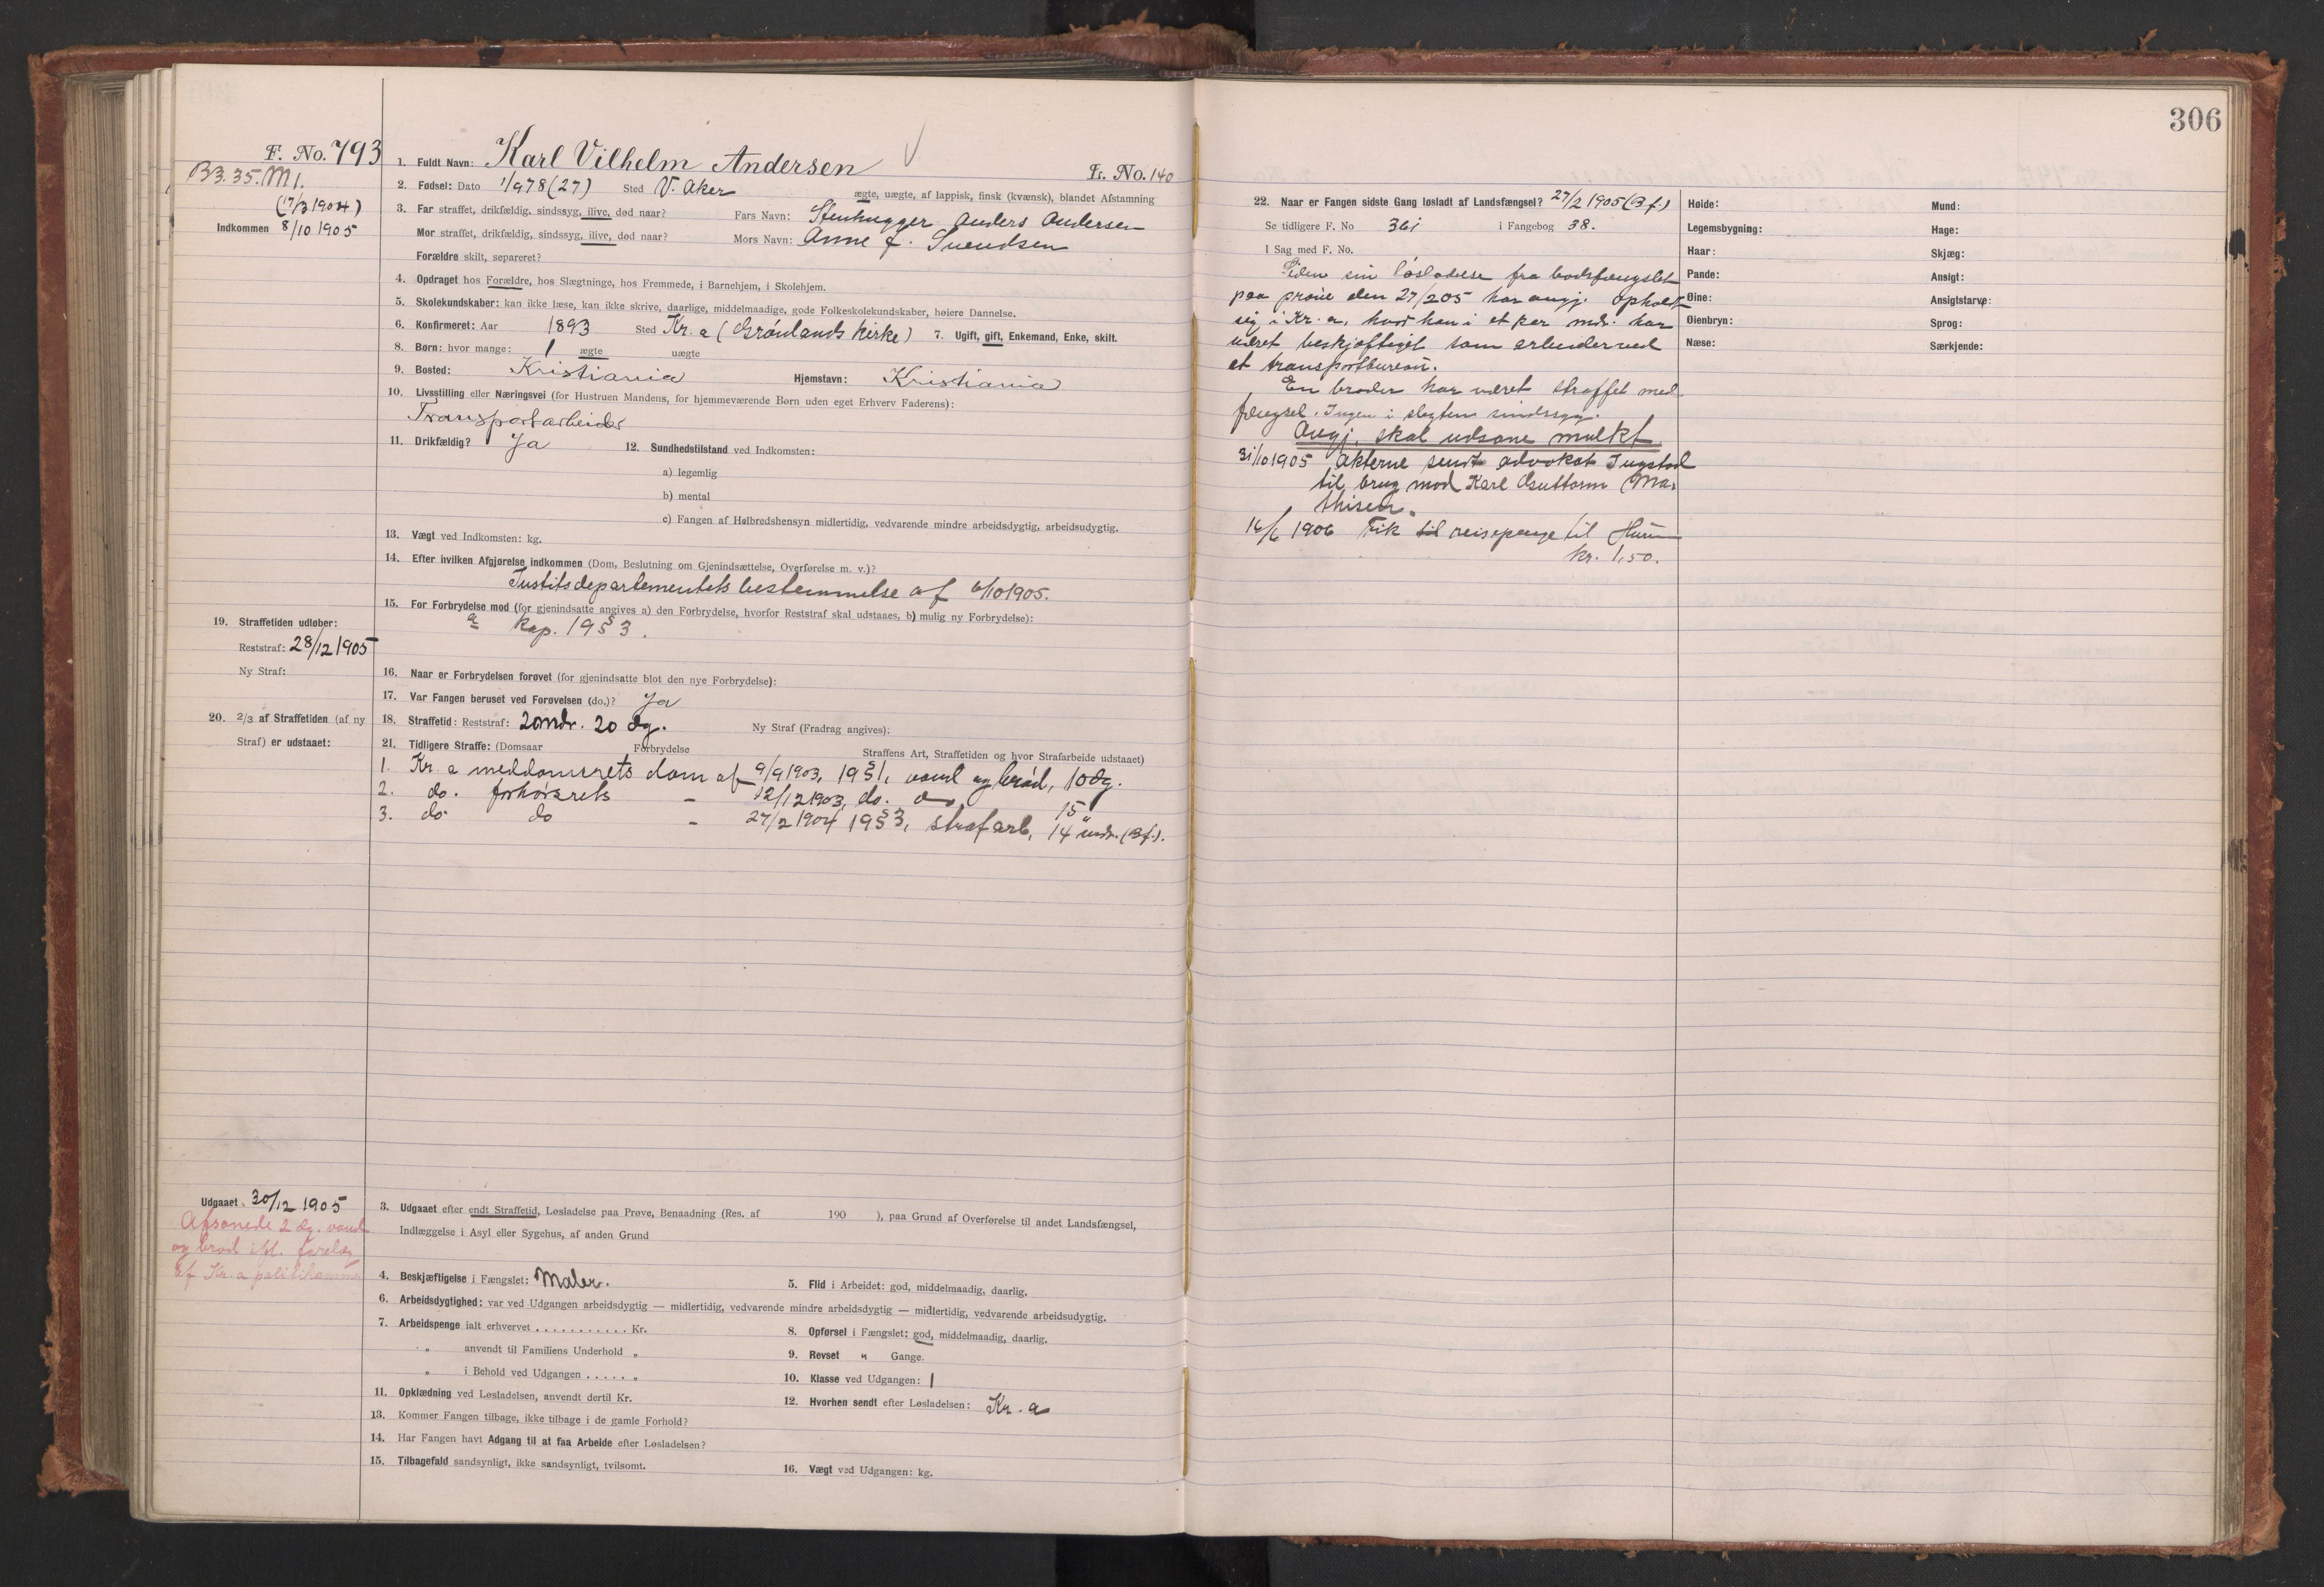 306
F. No. 793
B3. 35. M1.
(17/3 1904)
Indkommen 8/10 1905
1. Fuldt Navn: Karl Vilhelm Andersen
Fr. No. 140
2. Fødsel: Dato 1/9 78 (27) Sted V. Aker
ægte, uægte, af lappisk, finsk (kvænsk), blandet Afstamning
3. Far straffet, drikfældig, sindssyg, ilive, død naar? Fars Navn: Stenhugger Anders Andersen
Mor straffet, drikfældig, sindssyg, ilive, død naar? Mors Navn: Anne f. Svendsen
Forældre skilt, separeret?
4. Opdraget hos Forældre, hos Slægtninge, hos Fremmede, i Barnehjem, i Skolehjem.
5. Skolekundskaber: kan ikke læse, kan ikke skrive, daarlige, middelmaadige, gode Folkeskolekundskaber, høiere Dannelse.
6. Konfirmeret: Aar 1893 Sted Kr.a (Grønlands kirke) 7. Ugift, gift, Enkemand, Enke, skilt.
8. Børn: hvor mange: 1 ægte uægte
9. Bosted: Kristiania Hjemstavn: Kristiania
10. Livsstilling eller Næringsvei (for Hustruen Mandens, for hjemmeværende Børn uden eget Erhverv Faderens):
Transportarbeider
11. Drikfældig? Ja 12. Sundhedstilstand ved Indkomsten:
a) legemlig
b) mental
c) Fangen af Helbredshensyn midlertidig, vedvarende mindre arbeidsdygtig, arbeidsudygtig.
13. Vægt ved Indkomsten: kg.
14. Efter hvilken Afgjørelse indkommen (Dom, Beslutning om Gjenindsættelse, Overførelse m. v.)?
Justitsdepartementets bestemmelse af 6/10 1905.
15. For Forbrydelse mod (for gjenindsatte angives a) den Forbrydelse, hvorfor Reststraf skal udstaaes, b) mulig ny Forbrydelse):
a kap. 19 § 3.
19. Straffetiden udløber:
Reststraf: 28/12 1905
Ny Straf:
16. Naar er Forbrydelsen forøvet (for gjenindsatte blot den nye Forbrydelse):
17. Var Fangen beruset ved Forøvelsen (do.)? Ja
20. 2/3 af Straffetiden (af ny
Straf) er udstaaet:
18. Straffetid: Reststraf: 2 mdr. 20 dg. Ny Straf (Fradrag angives):
21. Tidligere Straffe: (Domsaar Forbrydelse Straffens Art, Straffetiden og hvor Strafarbeide udstaaet)
1. Kr.a meddomsrets dom af 9/9 1903, 19 § 1, vand og brød, 10 dg.
2. do. forhørsrets - 12/12 1903, do. do 15 "
3. do do - 27/2 1904 19 § 3, strafarb. 14 mdr. (Bf.).
Udgaaet 30/12 1905
Afsonede 2 dg. vand
og brød ifl. forelæg
af Kr.a politikammer
3. Udgaaet efter endt Straffetid, Løsladelse paa Prøve, Benaadning (Res. af 190 ), paa Grund af Overførelse til andet Landsfængsel,
Indlæggelse i Asyl eller Sygehus, af anden Grund
4. Beskjæftigelse i Fængslet: Maler. 5. Flid i Arbeidet: god, middelmaadig, daarlig.
6. Arbeidsdygtighed: var ved Udgangen arbeidsdygtig — midlertidig, vedvarende mindre arbeidsdygtig — midlertidig, vedvarende arbeidsudygtig.
7. Arbeidspenge ialt erhvervet . . . . . . . . . . . Kr.
8. Opførsel i Fængslet: god, middelmaadig, daarlig.
" anvendt til Familiens Underhold "
9. Revset " Gange.
" i Behold ved Udgangen . . . . . "
10. Klasse ved Udgangen: 1
11. Opklædning ved Løsladelsen, anvendt dertil Kr.
12. Hvorhen sendt efter Løsladelsen: Kr.a
13. Kommer Fangen tilbage, ikke tilbage i de gamle Forhold?
14. Har Fangen havt Adgang til at faa Arbeide efter Løsladelsen?
15. Tilbagefald sandsynligt, ikke sandsynligt, tvilsomt.
16. Vægt ved Udgangen: kg.
22. Naar er Fangen sidste Gang løsladt af Landsfængsel? 27/2 1905 (Bf.)
Se tidligere F. No 361 i Fangebog 38.
I Sag med F. No.
Siden sin løsladelse fra bodsfængslet
paa prøve den 27/2 05 har angj. opholdt
sig i Kr.a, hvor han i et par mdr. har
været beskjæftiget som arbeider ved
et transportbureau.
En broder har været straffet med
fængsel. Ingen i slegten sindssyg.
Angj. skal udsone mulkt
31/10 1905 Akterne sendt advokat Ingstad
til brug mod Karl Guttorm Ma-
thisen.
16/6 1906 Fik til reisepenge til Hurum
kr. 1,50.
Høide:
Legemsbygning:
Haar:
Pande:
Øine:
Øienbryn:
Næse:
Mund:
Hage:
Skjæg:
Ansigt:
Ansigtsfarve:
Sprog:
Særkjende: